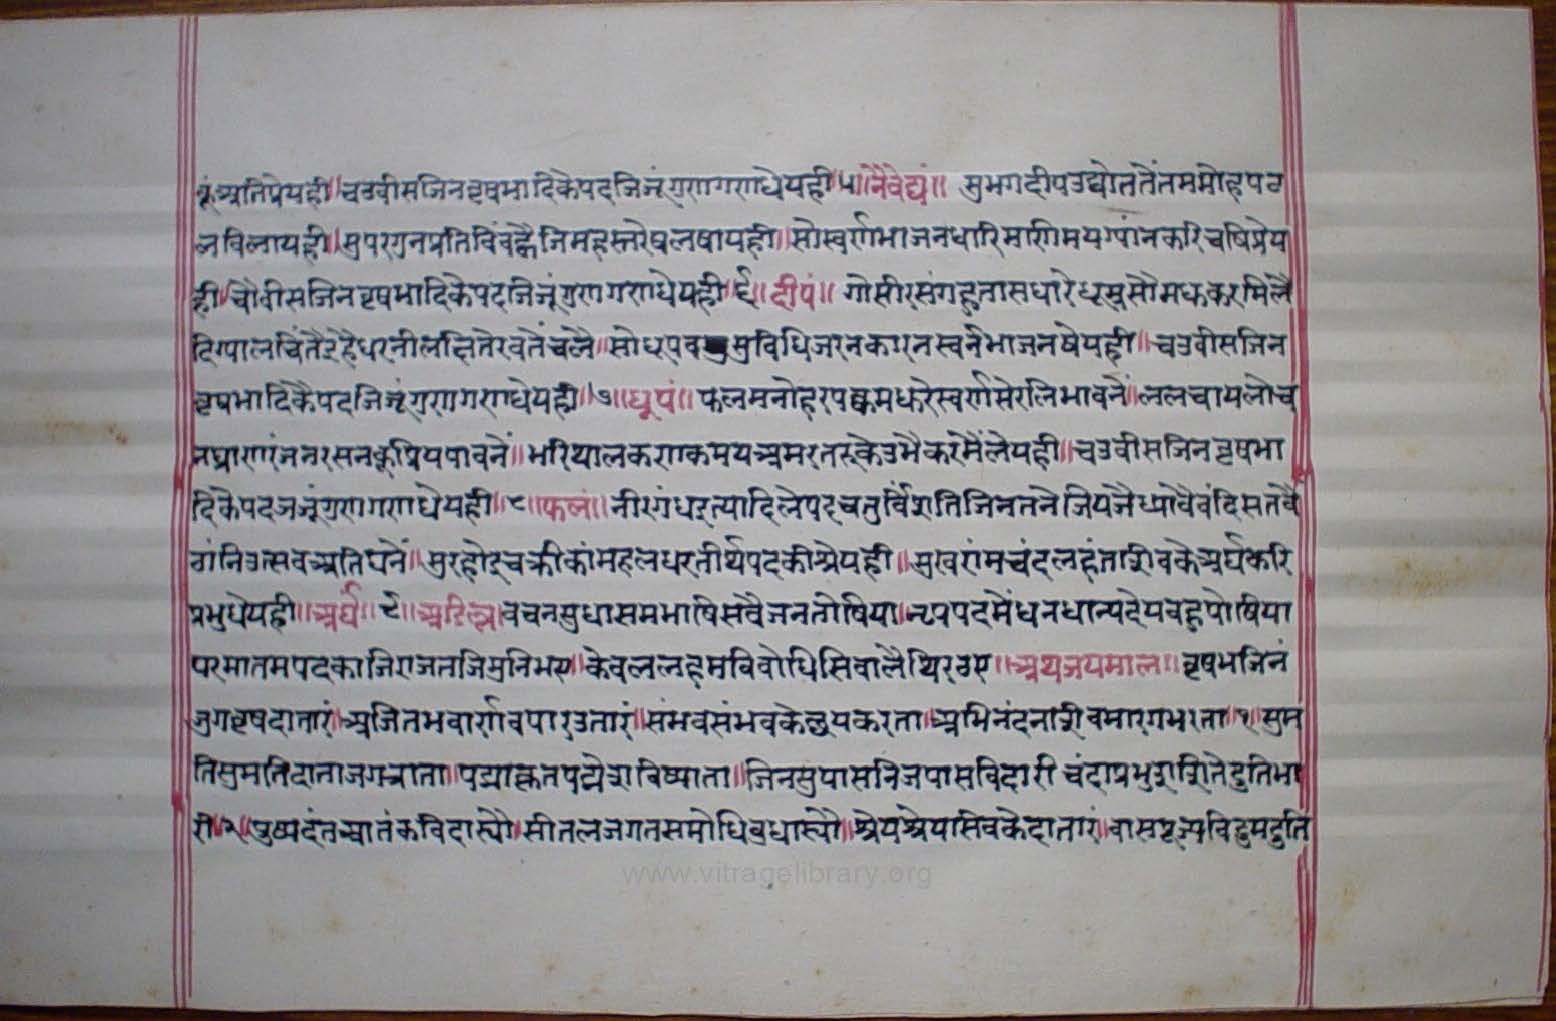 कूंअतिप्रेयही॥चउवीसजिनवृषभादिकेपदजजिजूंगुणगणधेयही॥५॥नैवेद्यं॥ सुभगदीपउद्योततेंतममोहपठ
लविलायही॥सुपरगुनप्रतिविंवह्वैजिमहस्तरेषलषायही॥सोस्वर्णभाजनधारिमणिमयग्यांनकरिचषिप्रेय
ही॥चौवीसजिनवृषभादिकेपदजिजूंगुणगणधेयही॥६॥दीपं॥ गोसीरसंगहुतासधारेधूम्रसौमधकरमिलै
दिग्पालचिंतैइहैधरनीलछितेरवतेंचलै॥सोधूपवसुविधिजरनकारनस्वर्नभाजनषेयही॥चउवीसजिन
वृषभादिकैपदजिजूंगुणगणधेयही॥७॥धूपं॥ फलमनोहरपक्वमधरेस्वर्णसेरलिभावनें॥ललचायलोच
नघ्राणरंजनरसनकूप्रियपावनें॥भरिथालकणकमयअमरतरुकेउभैकरमैंलेयही॥चउवीसजिनवृषभा
दिकेपदजजूंगुणगणधेयही॥८॥फलं॥नीरगंधइत्यादिलेपदचतुर्विंशतिजिनतनेजियजैध्यावैवंदिसतवै
ठांनिउत्सवअतिघनें॥सुरहोइचक्रीकांमहलधरतीर्थपदकीश्रेयही॥सुखरांमचंदलहंतशिवकेअर्घकरि
प्रभुधेयही॥अर्घं॥९॥अडिल्ल॥वचनसुधासमभाषिसवैजनतोषिया॥नृपपदमैंधनधान्यदेयवहुपोषिया
परमातमपदकाजिराजतजिमुनिभए॥केवललहमविवोधिसिवालैथिरठए॥अथजयमाल॥वृषभजिनं
जुगवृषदातारं॥अजितभवार्णवपारउतारं॥संभवसंभवकेछयकरता॥अभिनंदनशिवमारगभरता॥१॥सुम
तिसुमतिदाताजगत्राता॥पद्माकृतपद्मेशविष्याता॥जिनसुपासनिजपासविदारी चंदाप्रभुशशितेदुतिभा
री॥२॥पुष्पदंतआतंकविदास्यौ॥सीतलजगतसमोधिवुधास्यौ॥श्रेयश्रेयासिवकेदातारं॥वासपूज्यविद्रुमदुति
www.vitragelibrary.org